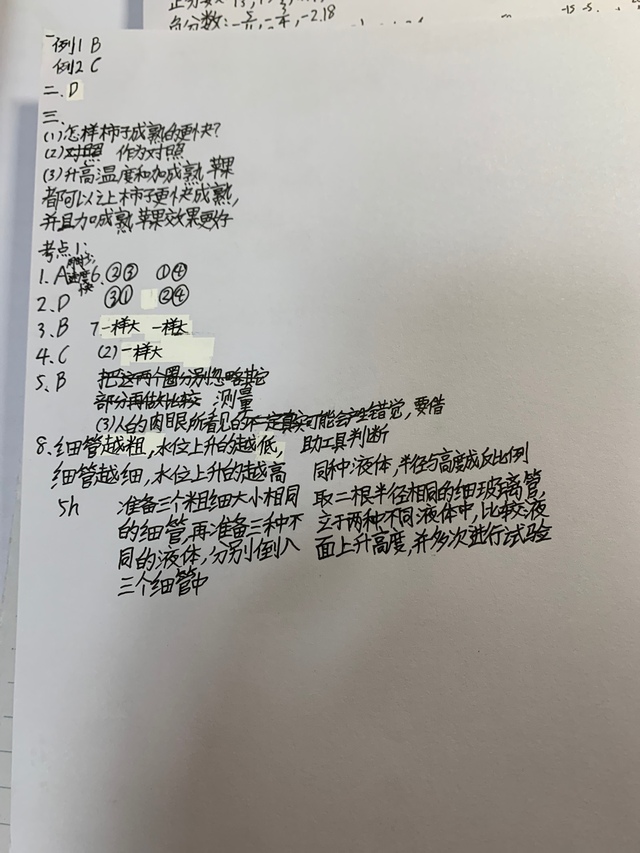 负分数: -5/11, -3/4, -2.18
-15 -5
例1 B
例2 C
二、D
三、
(1)怎样柿子成熟的更快?
(2)对照 作为对照
(3)升高温度和加成熟苹果
都可以让柿子更快成熟,
并且加成熟苹果效果更好
考点1:
1、A 6、②③ ①④
2、D ③① ②④
3、B 7、一样大 一样长
4、C (2)一样大
5、B 把这两个圈分别忽略其它
部分再做大比较,测量
(3)人的肉眼所看见的不一定真实可能会产生错觉,要借
助工具判断
8、细管越粗,水位上升的越低,
细管越细,水位上升的越高
同种液体,半径与高度成反比例
5h 准备三个粗细大小相同
的细管,再准备三种不
同的液体,分别倒入
三个细管中
取二根半径相同的细玻璃管,
立于两种不同液体中,比较液
面上升高度,并多次进行试验